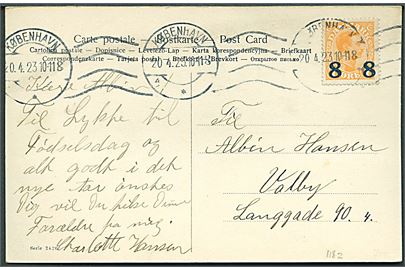 KØBENHAVN
20.4.23 10-11 8
KØBENHAVN
20.4.23 10-11 8
KØBENHAVN
20.4.23 10-11 8
8 8
ØRE
Carte postale
Postkarte
Post Card
Cartolina postale
Dopisnice
Levelező-Lap
Karta korespondencyjna
Briefkaart
Correspondenzkarte
Tarjeta postal
Brefkort
Brevkort
Открытое письмо
Kære Albin
Til Lykke til
Fødselsdag og
alt godt i det
nye Aar ønskes
Dig vil Du hilse Dine
Forældre fra mig.
Charlotte Hansen
Til
Albin Hansen
Valby
Langgade 90. 4.
1182